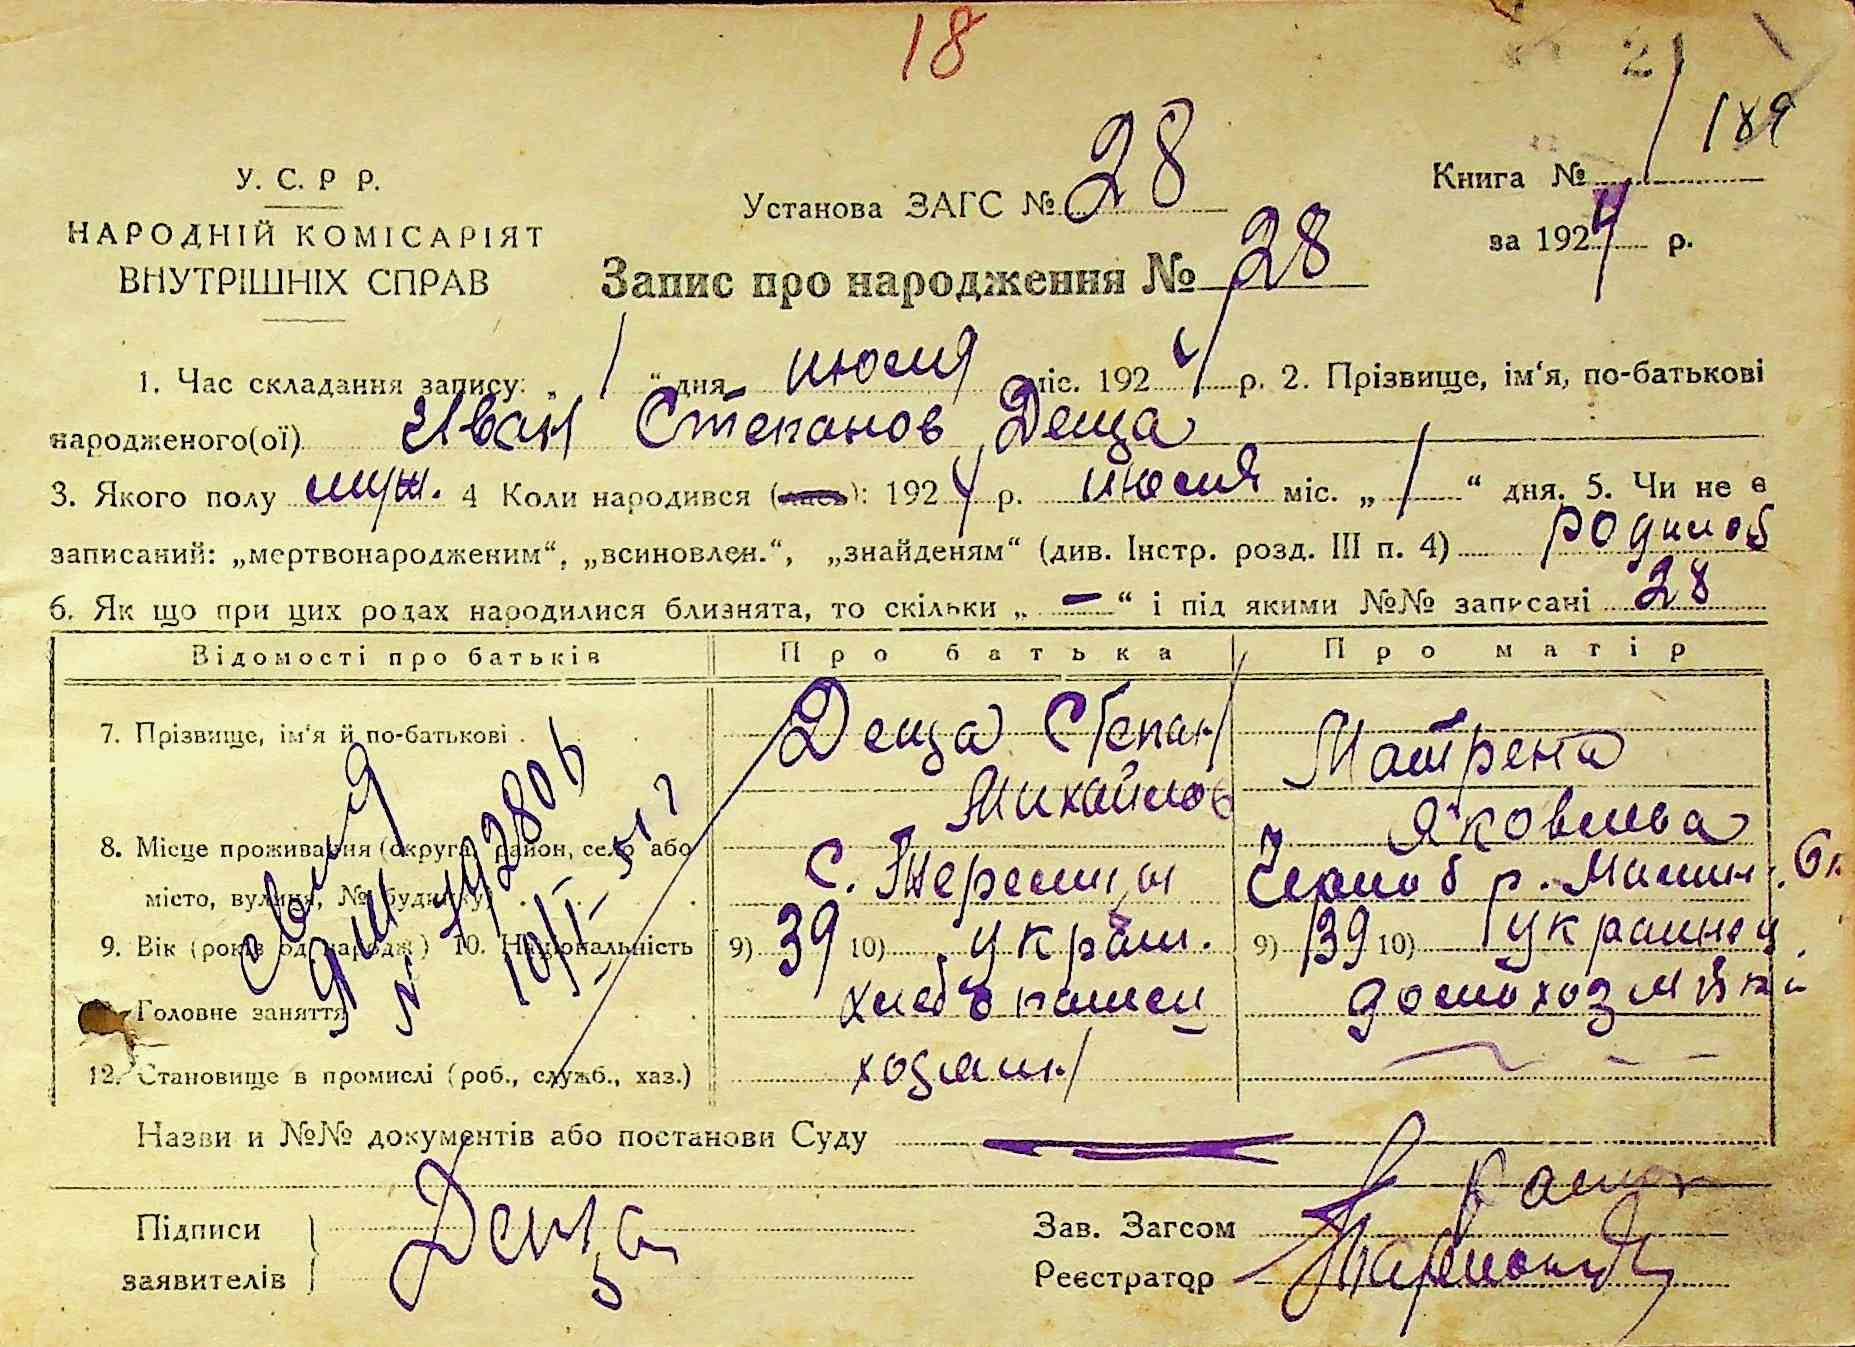 18
2
189
У. С. Р Р.
НАРОДНІЙ КОМІСАРІЯТ
ВНУТРІШНІХ СПРАВ
Установа ЗАГС № 28
Книга №
за 1924 р.
Запис про народження № 28
1. Час складання запису: „ 1 “ дня июля міс. 1924 р. 2. Прізвище, ім‘я, по-батькові
народженого(ої) Иван Степанов Деща
3. Якого полу муж. 4 Коли народився (лась): 1924 р. июля міс. „ 1 “ дня. 5. Чи не є
записаний: „мертвонародженим“, „всиновлен.“, „знайденям“ (див. Інстр. розд. III п. 4) родился
6. Як що при цих родах народилися близнята, то скільки „ — “ і під якими №№ записані 28
Відомості про батьків Про батька Про матір
7. Прізвище, ім‘я й по-батькові Деща Степан Матрена
Михайлов Яковлева
8. Місце проживання (округа, район, село або
місто, вулиця, № будинку) с.
9. Вік (років од народж.) 10. Національність 9) 39 10) украин. 9) 39 10) украинец
Головне заняття хлебопашец домохозяйка
12. Становище в промислі (роб., служб., хаз.) хозяин
Назви и №№ документів або постанови Суду
Підписи
заявителів Деща
Зав. Загсом
Реєстратор